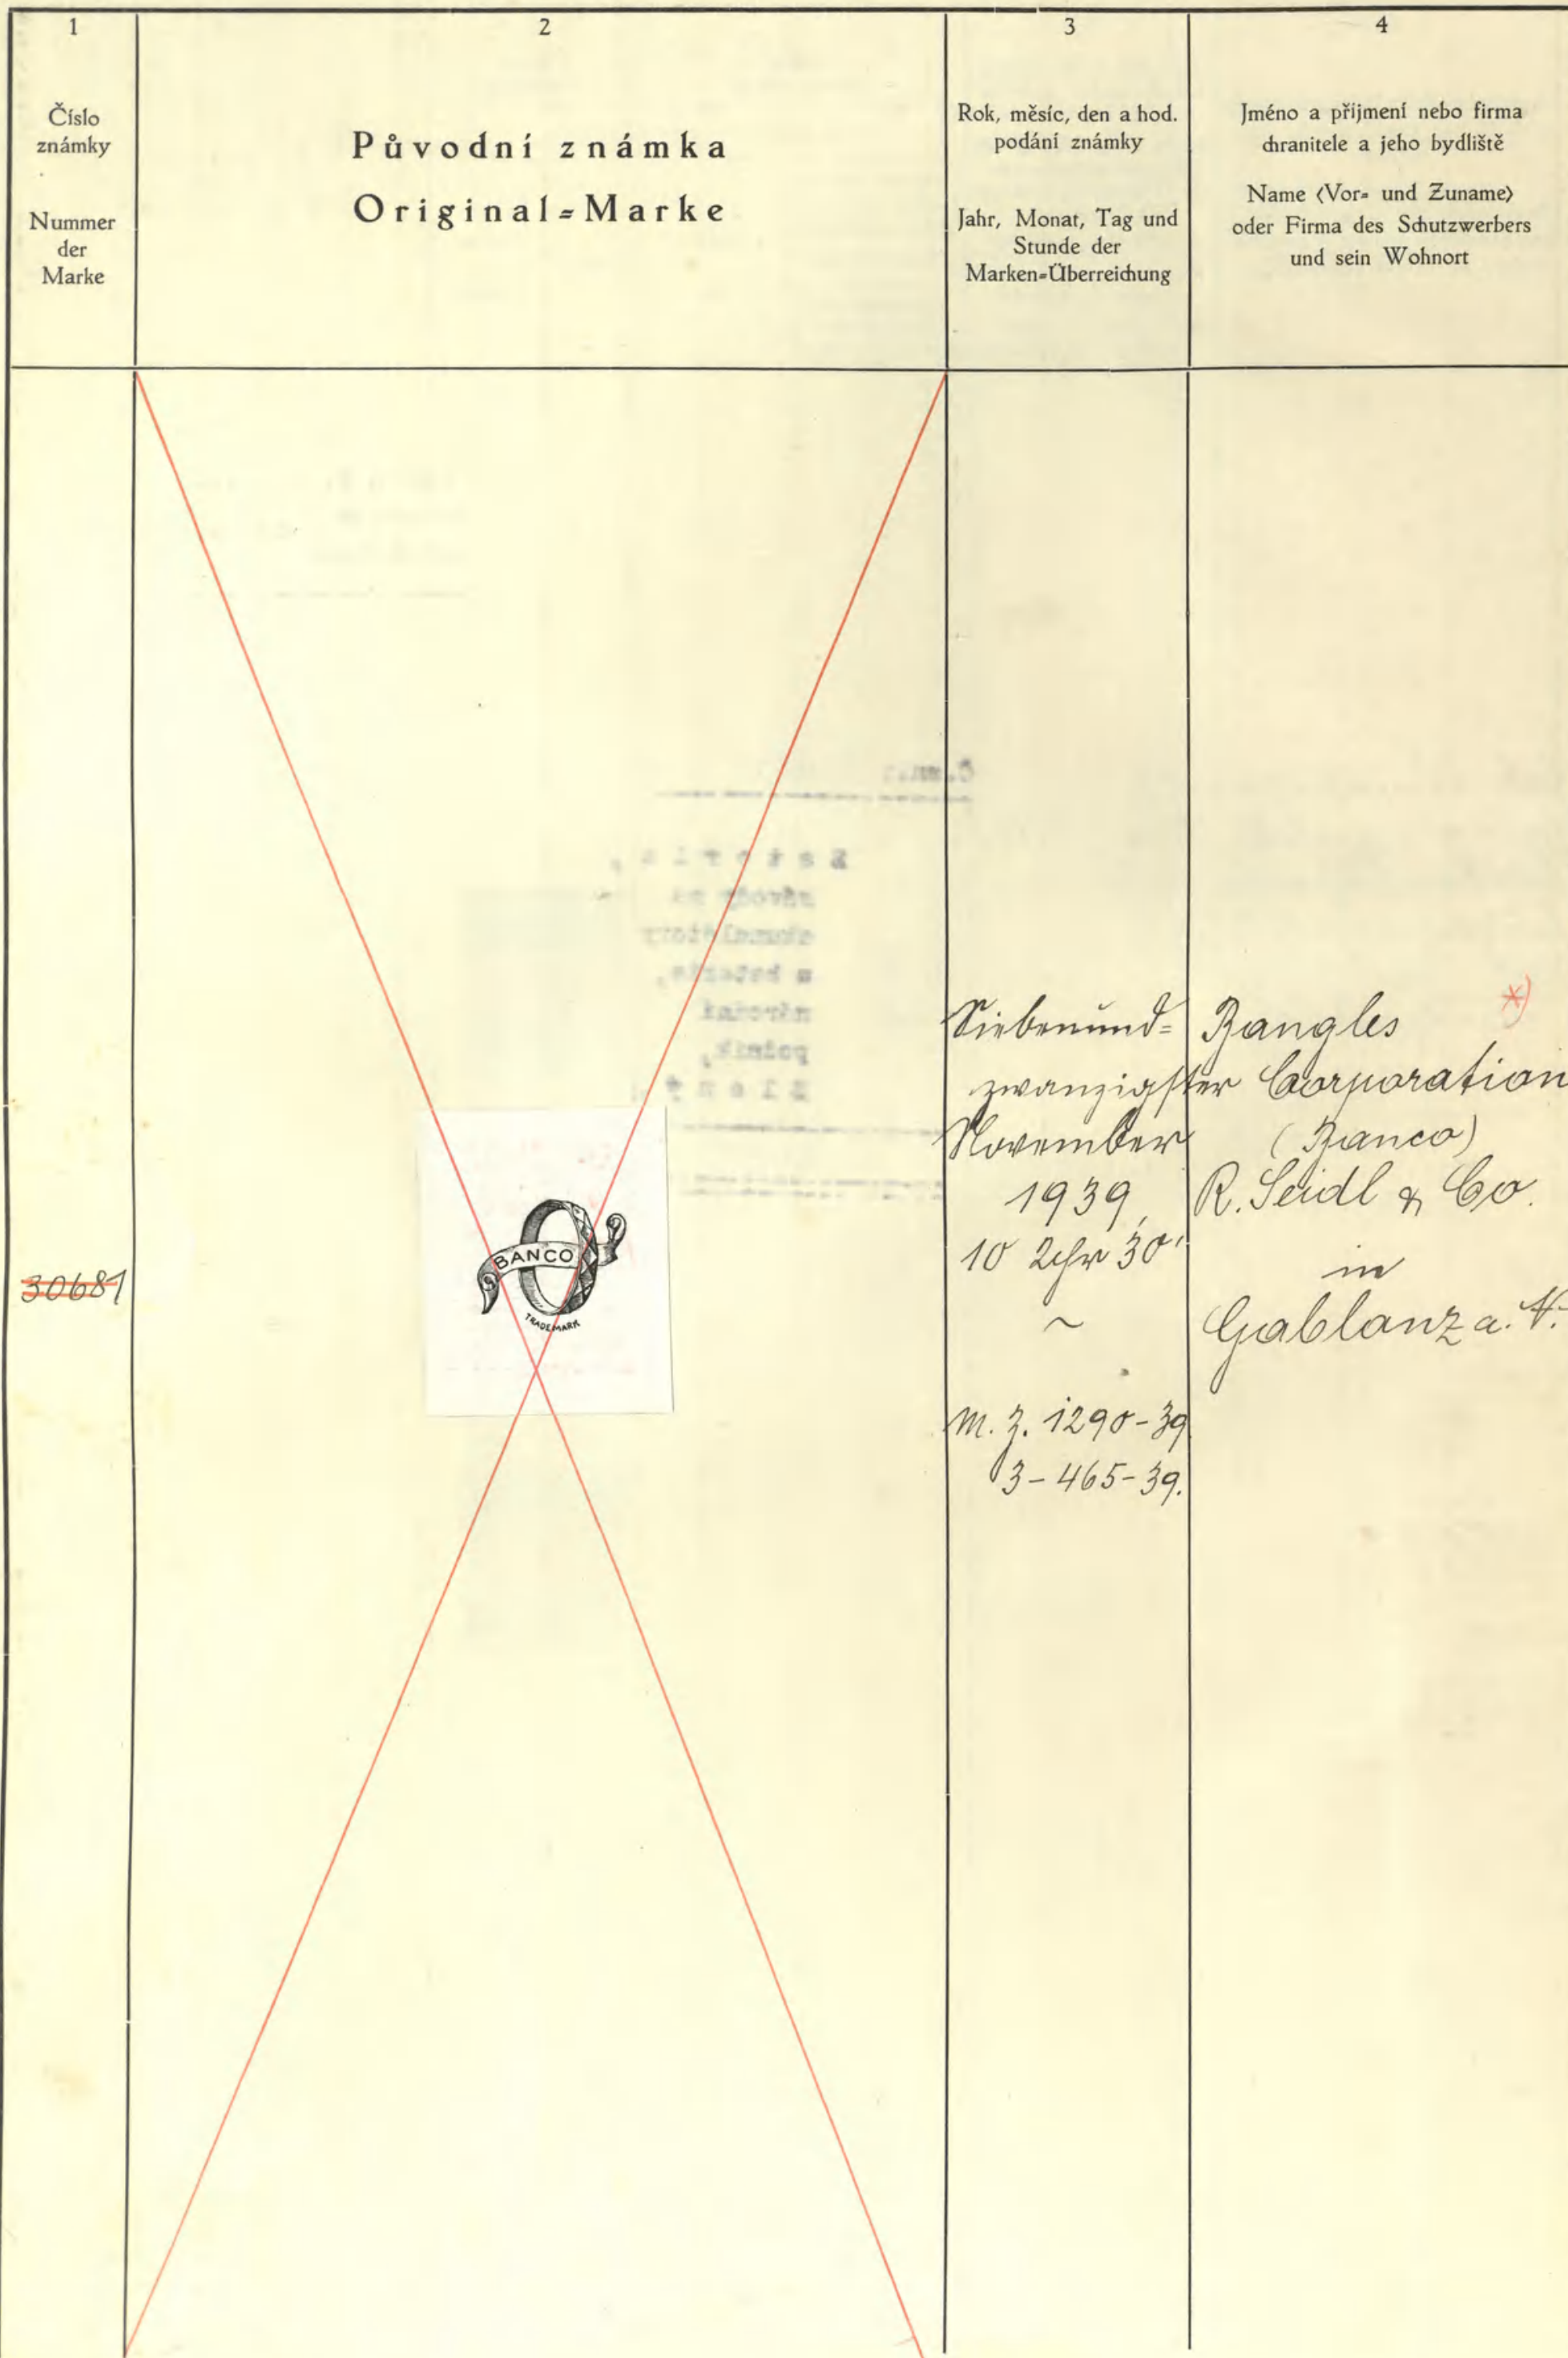 1
Číslo
známky
Nummer
der
Marke
2
Původní známka
Original-Marke
3
Rok, měsíc, den a hod.
podání známky
Jahr, Monat, Tag und
Stunde der
Marken-Überreichung
4
Jméno a příjmení nebo firma
chranitele a jeho bydliště
Name (Vor- und Zuname)
oder Firma des Schutzwerbers
und sein Wohnort
30681
BANCO
TRADEMARK
Siebenund-
zwanzigster
November
1939,
10 Uhr 30'
~
M. Z. 1290-39
3-465-39.
*)
Bangles
Corporation
(Banco)
R. Seidl & Co.
in
Gablonz a. N.